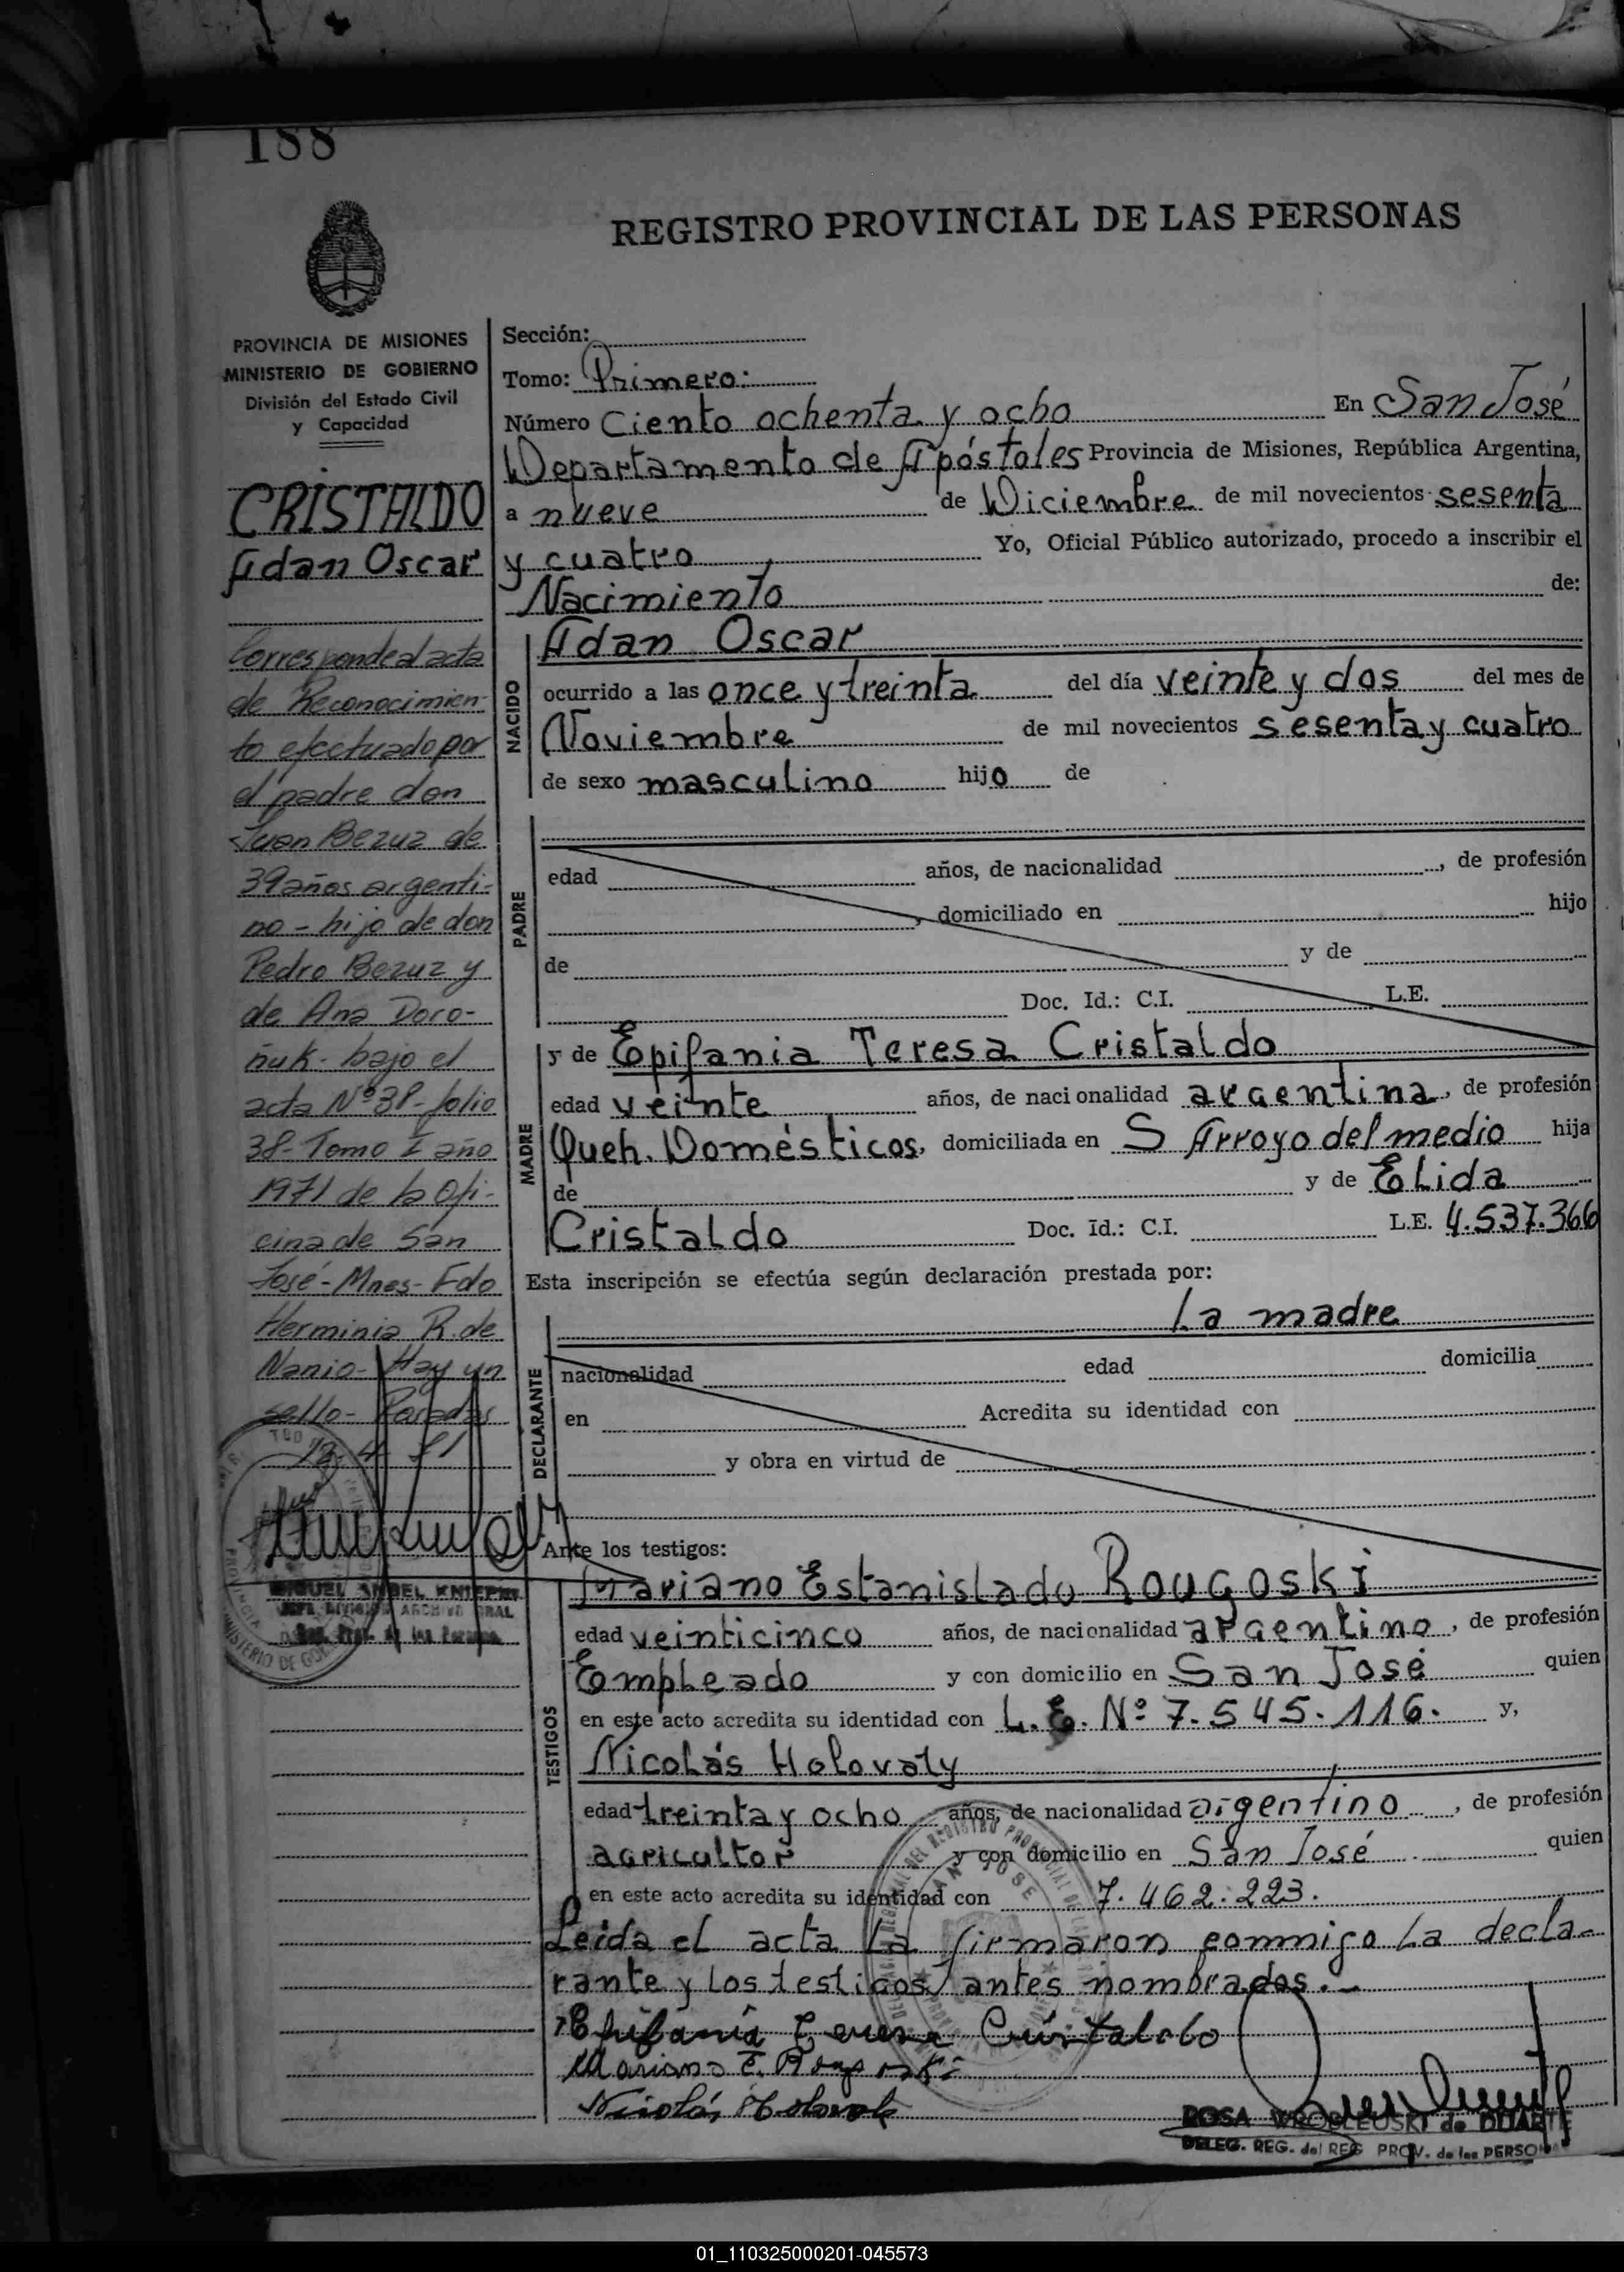 188
REGISTRO PROVINCIAL DE LAS PERSONAS
PROVINCIA DE MISIONES
MINISTERIO DE GOBIERNO
División del Estado Civil
y Capacidad
CRISTALDO
Adan Oscar
Corresponde al acta
de Reconocimien-
to efectuado por
el padre don
Juan Bezuz de
39 años argenti-
no - hijo de don
Pedro Bezuz y
de Ana Doro-
ñuk - bajo el
acta Nº 38 - folio
38 - Tomo I año
1971 de la Ofi-
cina de San
José - Mnes - Fdo
Herminia R. de
Nanio - Hay un
sello - Posadas
MIGUEL ANGEL
JEFE DIVISION ARCHIVO GRAL
Reg. Prov. de las Personas
Sección:
Tomo: Primero:
Número Ciento ochenta y ocho En San José
Departamento de Apóstoles Provincia de Misiones, República Argentina,
a nueve de Diciembre de mil novecientos sesenta
y cuatro Yo, Oficial Público autorizado, procedo a inscribir el
Nacimiento de:
NACIDO
Adan Oscar
ocurrido a las once y treinta del día veinte y dos del mes de
Noviembre de mil novecientos sesenta y cuatro
de sexo masculino hijo de
PADRE
edad años, de nacionalidad , de profesión
, domiciliado en hijo
de y de
Doc. Id.: C.I. L.E.
MADRE
y de Epifania Teresa Cristaldo
edad veinte años, de nacionalidad argentina, de profesión
Queh. Domésticos, domiciliada en S Arroyo del medio hija
de y de Elida
Cristaldo Doc. Id.: C.I. L.E. 4.537.366
Esta inscripción se efectúa según declaración prestada por:
La madre
DECLARANTE
nacionalidad edad domicilia
en Acredita su identidad con
y obra en virtud de
Ante los testigos:
TESTIGOS
Mariano Estanislado Rougoski
edad veinticinco años, de nacionalidad argentino, de profesión
Empleado y con domicilio en San José quien
en este acto acredita su identidad con L.E. Nº 7.545.116. y,
Nicolás Holovaty
edad treinta y ocho años, de nacionalidad argentino , de profesión
agricultor y con domicilio en San José quien
en este acto acredita su identidad con 7.462.223.
Leida el acta la firmaron conmigo la decla-
rante y los testigos antes nombrados.-
Epifania Teresa Cristaldo
Mariano E. Rougoski
Nicolás Holovaty
ROSA WROBLEUSKI de DUARTE
DELEG. REG. del REG PROV. de las PERSONAS
01_110325000201-045573